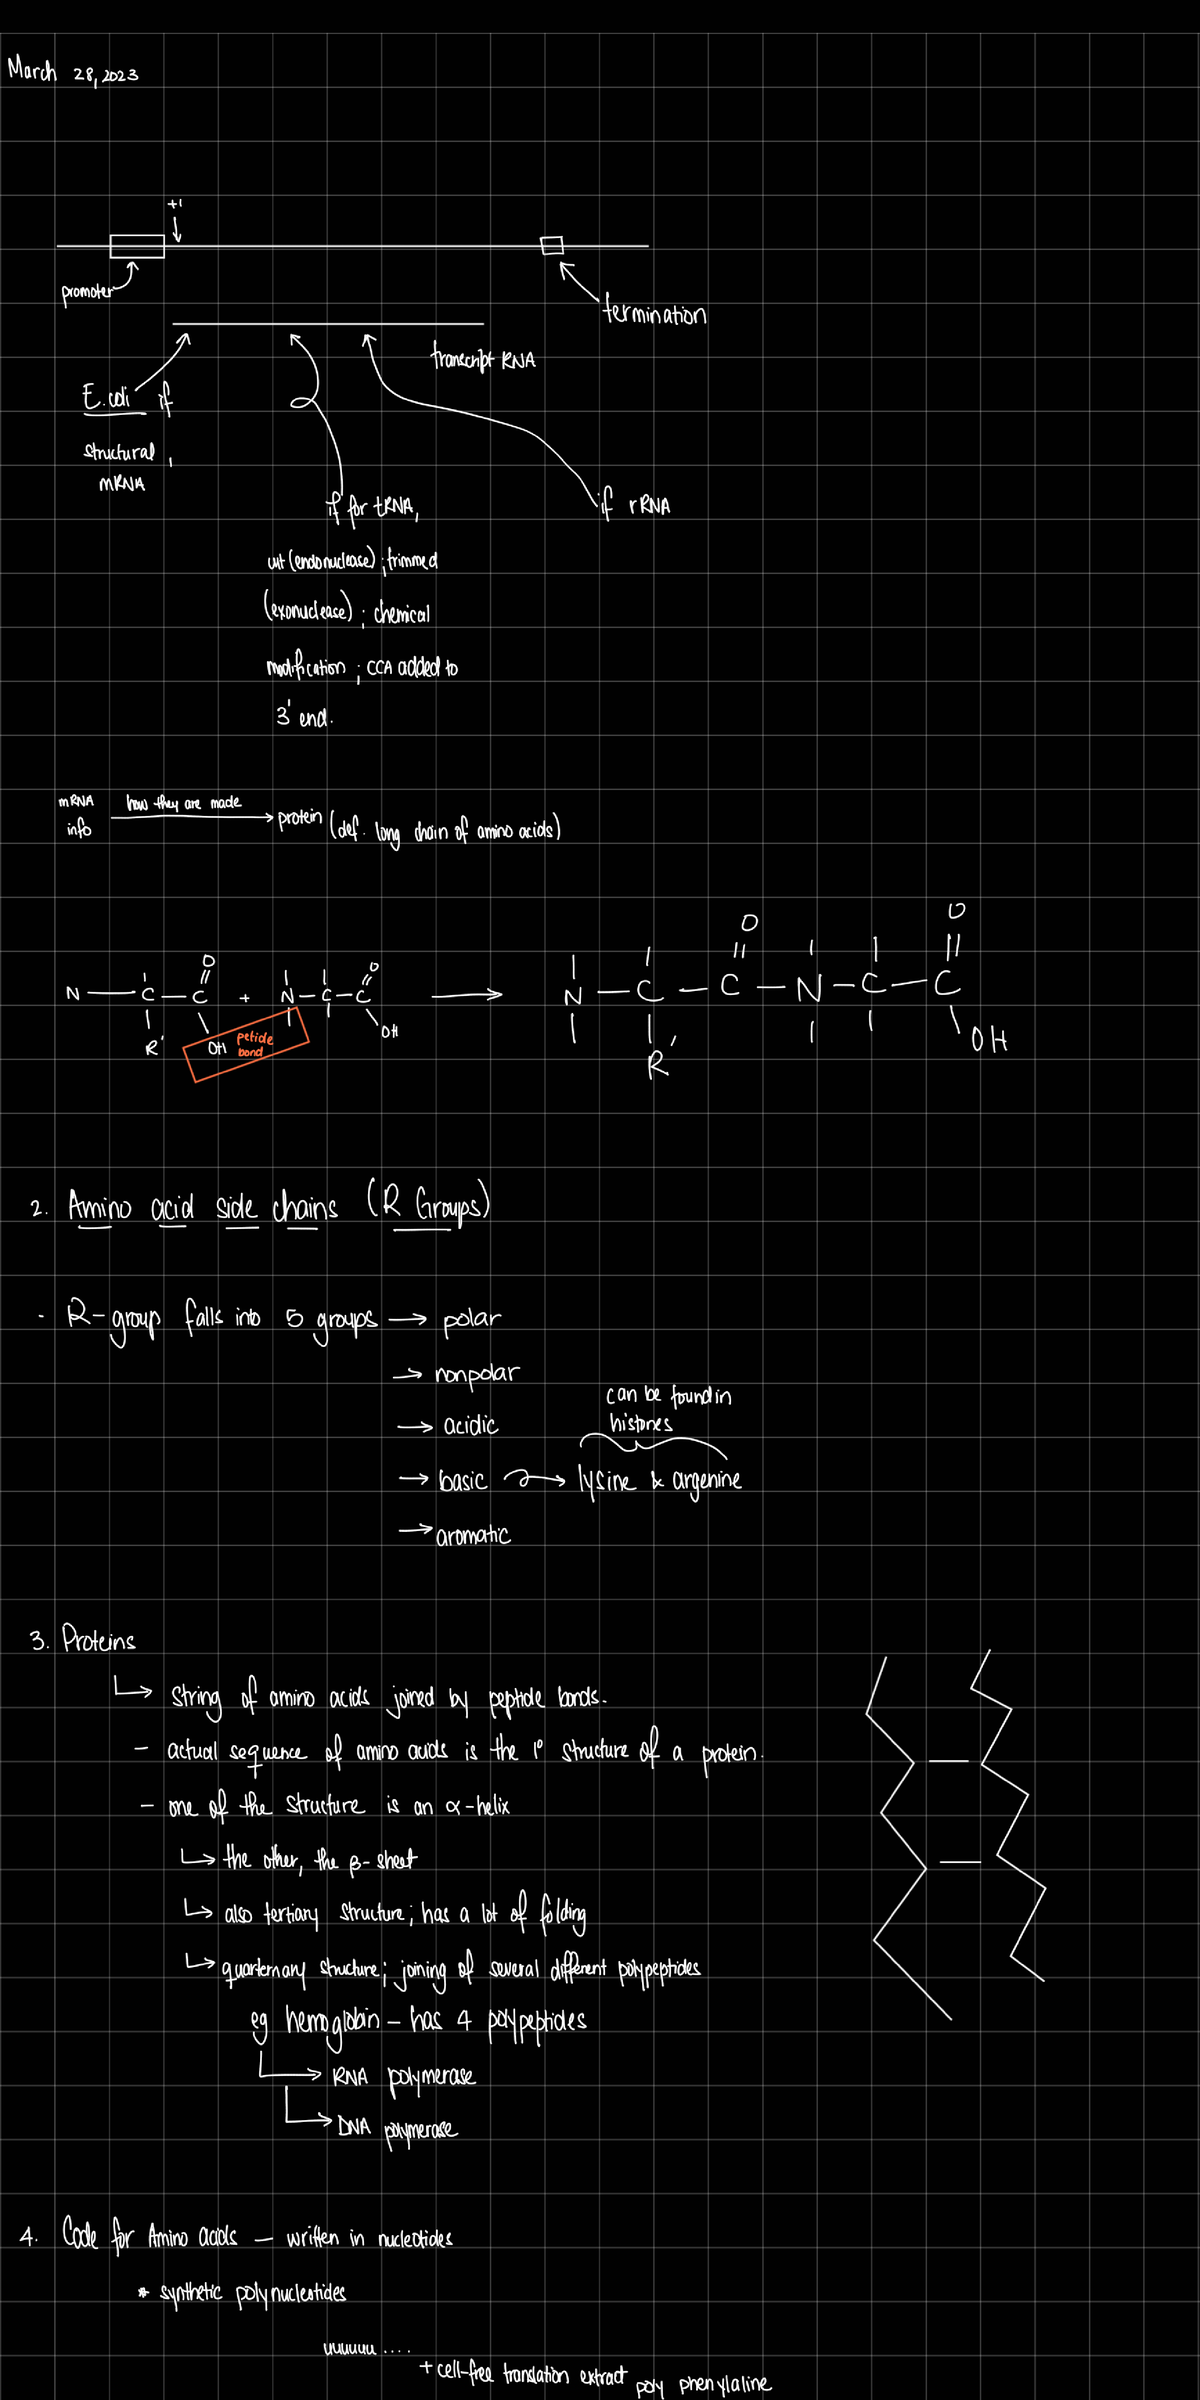 March 28, 2023
+1
promoter
termination
transcript RNA
E.coli if
structural,
mRNA
if for tRNA,
cut (endonuclease); trimmed
(exonuclease); chemical
modification; CCA added to
3' end.
if rRNA
mRNA
info
how they are made
protein (def. long chain of amino acids)
O
N — C — C
R'
OH
+
O
N — C — C
OH
petide
bond
O
O
N — C — C — N — C — C
R'
OH
2. Amino acid side chains (R Groups)
- R-group falls into 5 groups → polar
→ nonpolar
can be found in
histones
→ acidic
→ basic → lysine & argenine
→ aromatic
3. Proteins
↳ string of amino acids joined by peptide bonds.
- actual sequence of amino acids is the 1° structure of a protein.
- one of the structure is an α-helix
↳ the other, the β-sheet
↳ also tertiary structure; has a lot of folding
↳ quarternary structure; joining of several different polypeptides
eg hemoglobin - has 4 polypeptides
→ RNA polymerase
→ DNA polymerase
4. Code for Amino acids — written in nucleotides
* synthetic polynucleotides
uuuuuu ....
+ cell-free translation extract poly phenylaline